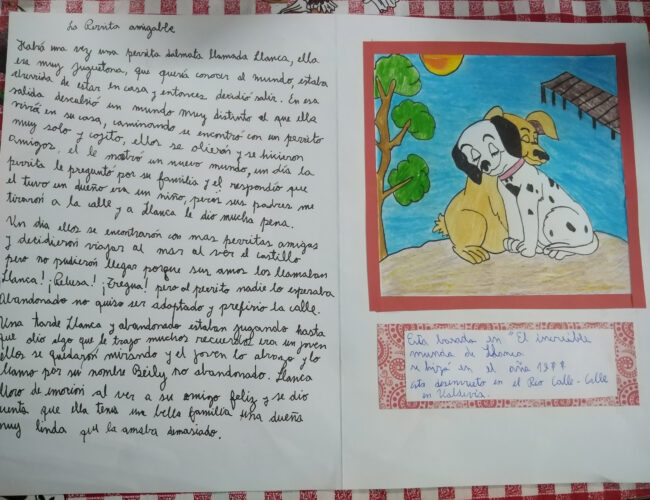 La Perrita amigable
Habá una vez una perrita dalmata llamada Llanca, ella
ese muy juguetona, que quería conocer al mundo, estaba
aburrida de estar en casa y entonces decidió salir. En esa
salida descubrió un mundo muy distinto al que ella
vivía en su casa, caminando se encontró con un perrito
muy solo y cojito, ellos se olieron y se hicieron
amigos. el le mostró un nuevo mundo, un día la
perrita le pregunto por su familia y el respondio que
el tuvo un dueño era un niño, pero sus padres me
tiraron a la calle y a Llanca le dio mucha pena.
Un día ellos se encontrarón con mas perritas amigas
y decidieron viajar al mar al ver el castillo
pero no pudieron llegar porque sus amos los llamaban
Llanca! ¡Pelusa! ¡ pero al perrito nadie lo esperaba
Abandonado no quiso ser adoptado y prefirió la calle.
Una tarde Llanca y abandonado estaban jugando hasta
que olio algo que le trajo muchos recuerdos era un joven
ellos se quedaron mirando y el joven lo abrazo y lo
llamo por su nombre Beily no abandonado. Llanca
lloro de emoción al ver a su amigo feliz y se dio
cuenta que ella tenes una bella familia una dueña
muy linda que la amaba demasiado.
Esta basada en "El increíble
mundo de Llanca
se hizo en el año 1977
esta descrito en el Rio Calle-Calle
en Valdivia.